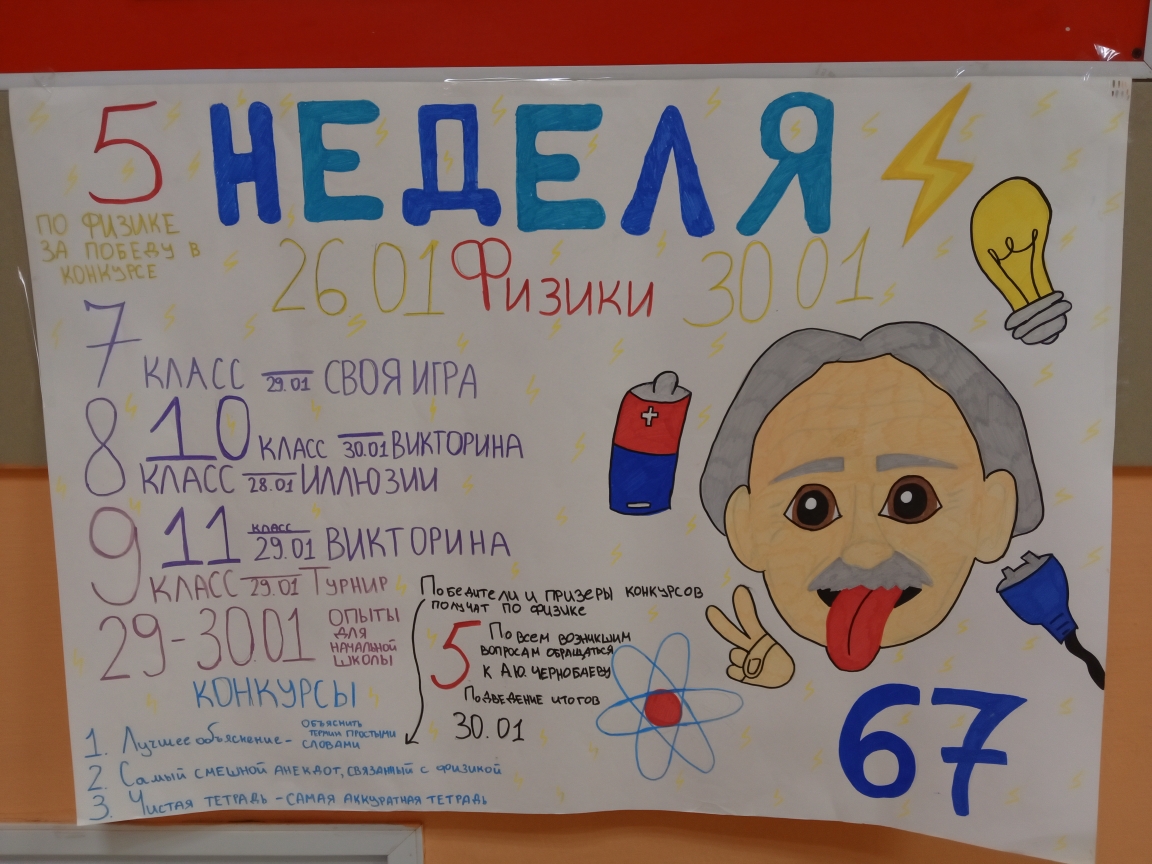 5 НЕДЕЛЯ
ПО ФИЗИКЕ
ЗА ПОБЕДУ В
КОНКУРСЕ
26.01 Физики 30 01
7 КЛАСС 29.01 СВОЯ ИГРА
10 КЛАСС 30.01 ВИКТОРИНА
8 КЛАСС 28.01 ИЛЛЮЗИИ
11 КЛАСС 29.01 ВИКТОРИНА
9 КЛАСС 29.01 ТУРНИР
29-30.01 ОПЫТЫ
ДЛЯ
НАЧАЛЬНОЙ
ШКОЛЫ
Победители и призеры конкурсов
получат по физике
5
По всем возникшим
вопросам обращаться
к А.Ю. Чернобаеву
Подведение итогов
30.01
КОНКУРСЫ
1. Лучшее объяснение - объяснить
термин простыми
словами
2. Самый смешной анекдот, связатый с физикой
3. Чистая тетрадь - самая аккуратная тетрадь
+
-
67